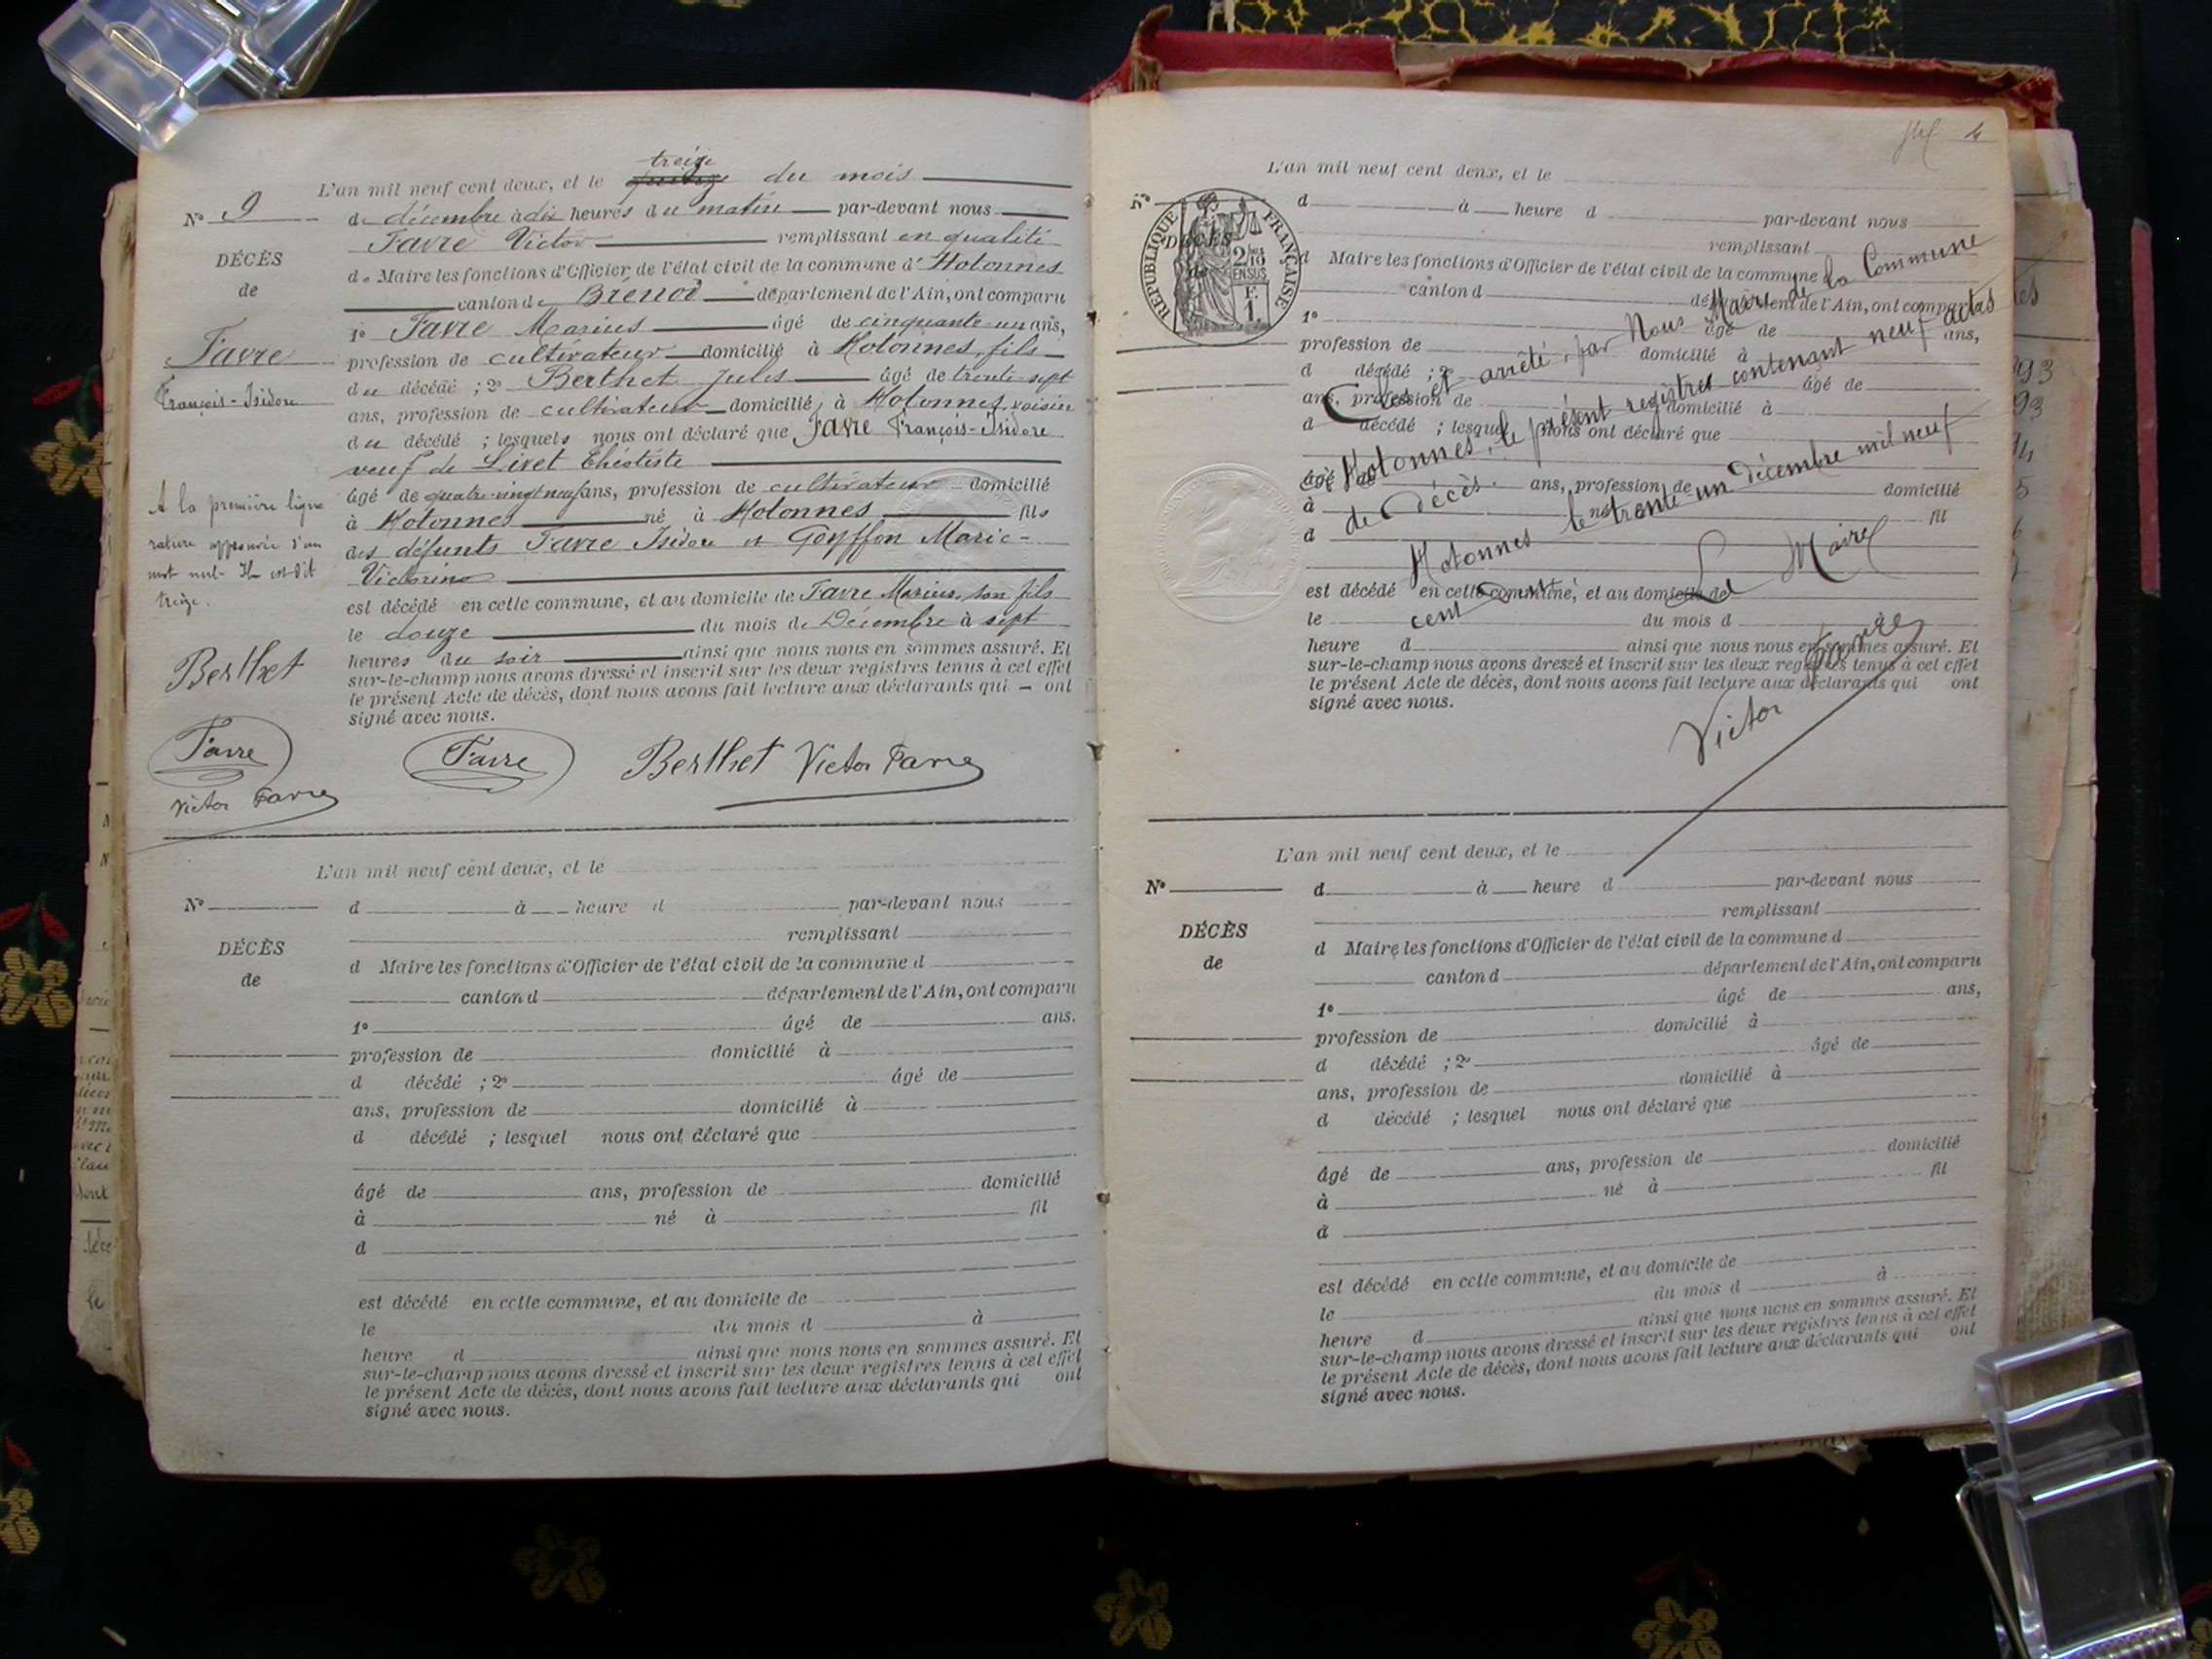 L'an mil neuf cent deux, et le treize du mois
N° 9
de décembre à dix heures du matin par-devant nous
Favre Victor remplissant en qualité
DÉCÈS
de
Favre
François-Isidore
de Maire les fonctions d'Officier de l'état civil de la commune d'Hotonnes
canton de Brénod département de l'Ain, ont comparu
1° Favre Marius âgé de cinquante-un ans,
profession de cultivateur domicilié à Hotonnes, fils
du décédé ; 2° Berthet Jules âgé de trente-sept
ans, profession de cultivateur domicilié à Hotonnes, voisin
du décédé ; lesquels nous ont déclaré que Favre François-Isidore
veuf de Livet Théotiste
âgé de quatre-vingt neuf ans, profession de cultivateur domicilié
à Hotonnes né à Hotonnes fils
des défunts Favre Isidore et Goyffon Marie-
Victorine
est décédé en cette commune, et au domicile de Favre Marius, son fils
le douze du mois de Décembre à sept
heures du soir ainsi que nous nous en sommes assuré. Et
sur-le-champ nous avons dressé et inscrit sur les deux registres tenus à cet effet
le présent Acte de décès, dont nous avons fait lecture aux déclarants qui ont
signé avec nous.
A la première ligne
rature approuvée d'un
mot nul. Il est dit
treize.
Berthet
Favre
Victor Favre
Favre Berthet Victor Favre
L'an mil neuf cent deux, et le
N° d à heure d par-devant nous
remplissant
DÉCÈS
de
d Maire les fonctions d'Officier de l'état civil de la commune d
canton d département de l'Ain, ont comparu
1° âgé de ans.
profession de domicilié à
d décédé ; 2° âgé de
ans, profession de domicilié à
d décédé ; lesquel nous ont déclaré que
âgé de ans, profession de domicilié
à né à fil
d
est décédé en cette commune, et au domicile de
le du mois d à
heure d ainsi que nous nous en sommes assuré. Et
sur-le-champ nous avons dressé et inscrit sur les deux registres tenus à cet effet
le présent Acte de décès, dont nous avons fait lecture aux déclarants qui ont
signé avec nous.
4
L'an mil neuf cent deux, et le
N° d à heure d par-devant nous
remplissant
RÉPUBLIQUE FRANÇAISE
2/10 EN SUS
F. 1.
DÉCÈS
de
d Maire les fonctions d'Officier de l'état civil de la commune
canton d département de l'Ain, ont comparu
1° âgé de ans,
profession de domicilié à
d décédé ; 2° âgé de
ans, profession de domicilié à
d décédé ; lesquel nous ont déclaré que
âgé de ans, profession de domicilié
à né fil
d
est décédé en cette commune, et au domicile de
le du mois d
heure d ainsi que nous nous en sommes assuré. Et
sur-le-champ nous avons dressé et inscrit sur les deux registres tenus à cet effet
le présent Acte de décès, dont nous avons fait lecture aux déclarants qui ont
signé avec nous.
Clos et arrêté, par Nous Maire de la Commune
d'Hotonnes, le présent registre contenant neuf actes
de décès.
Hotonnes le trente un décembre mil neuf
cent deux
Le Maire
Victor Favre
L'an mil neuf cent deux, et le
N° d à heure d par-devant nous
remplissant
DÉCÈS
de
d Maire les fonctions d'Officier de l'état civil de la commune d
canton d département de l'Ain, ont comparu
1° âgé de ans,
profession de domicilié à
d décédé ; 2° âgé de
ans, profession de domicilié à
d décédé ; lesquel nous ont déclaré que
âgé de ans, profession de domicilié
à né à fil
d
est décédé en cette commune, et au domicile de
le du mois d à
heure d ainsi que nous nous en sommes assuré. Et
sur-le-champ nous avons dressé et inscrit sur les deux registres tenus à cet effet
le présent Acte de décès, dont nous avons fait lecture aux déclarants qui ont
signé avec nous.